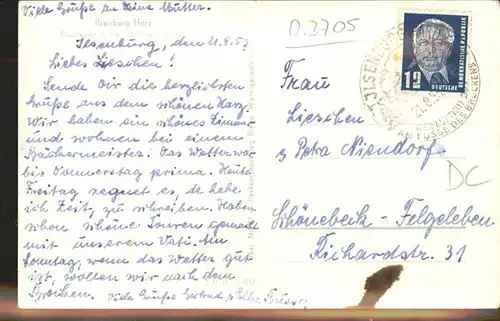 Viele Grüße an Deine Mutter.
Ilsenburg Harz
Ilsenburg, den 21.8.53
Liebes Lieschen!
Sende Dir die herzlichsten
Grüße aus dem schönen Harz.
Wir haben ein schönes Zimmer
und wohnen bei einem
Bäckermeister. Das Wetter war
bis Donnerstag prima. Heute
Freitag regnet es, da habe
ich Zeit, zu schreiben. Haben
schon schöne Touren gemacht
mit unserem Vati. Am
Sonntag, wenn das Wetter gut
ist, wollen wir nach dem
Brocken. Viele Grüße Gertrud
D.3705
12
DEUTSCHE
DEMOKRATISCHE REPUBLIK
AM FUSSE DES BROCKENS
Frau
Lieschen
Petra Niendorf
DC
Schönebeck-Felgeleben
Richardstr. 31